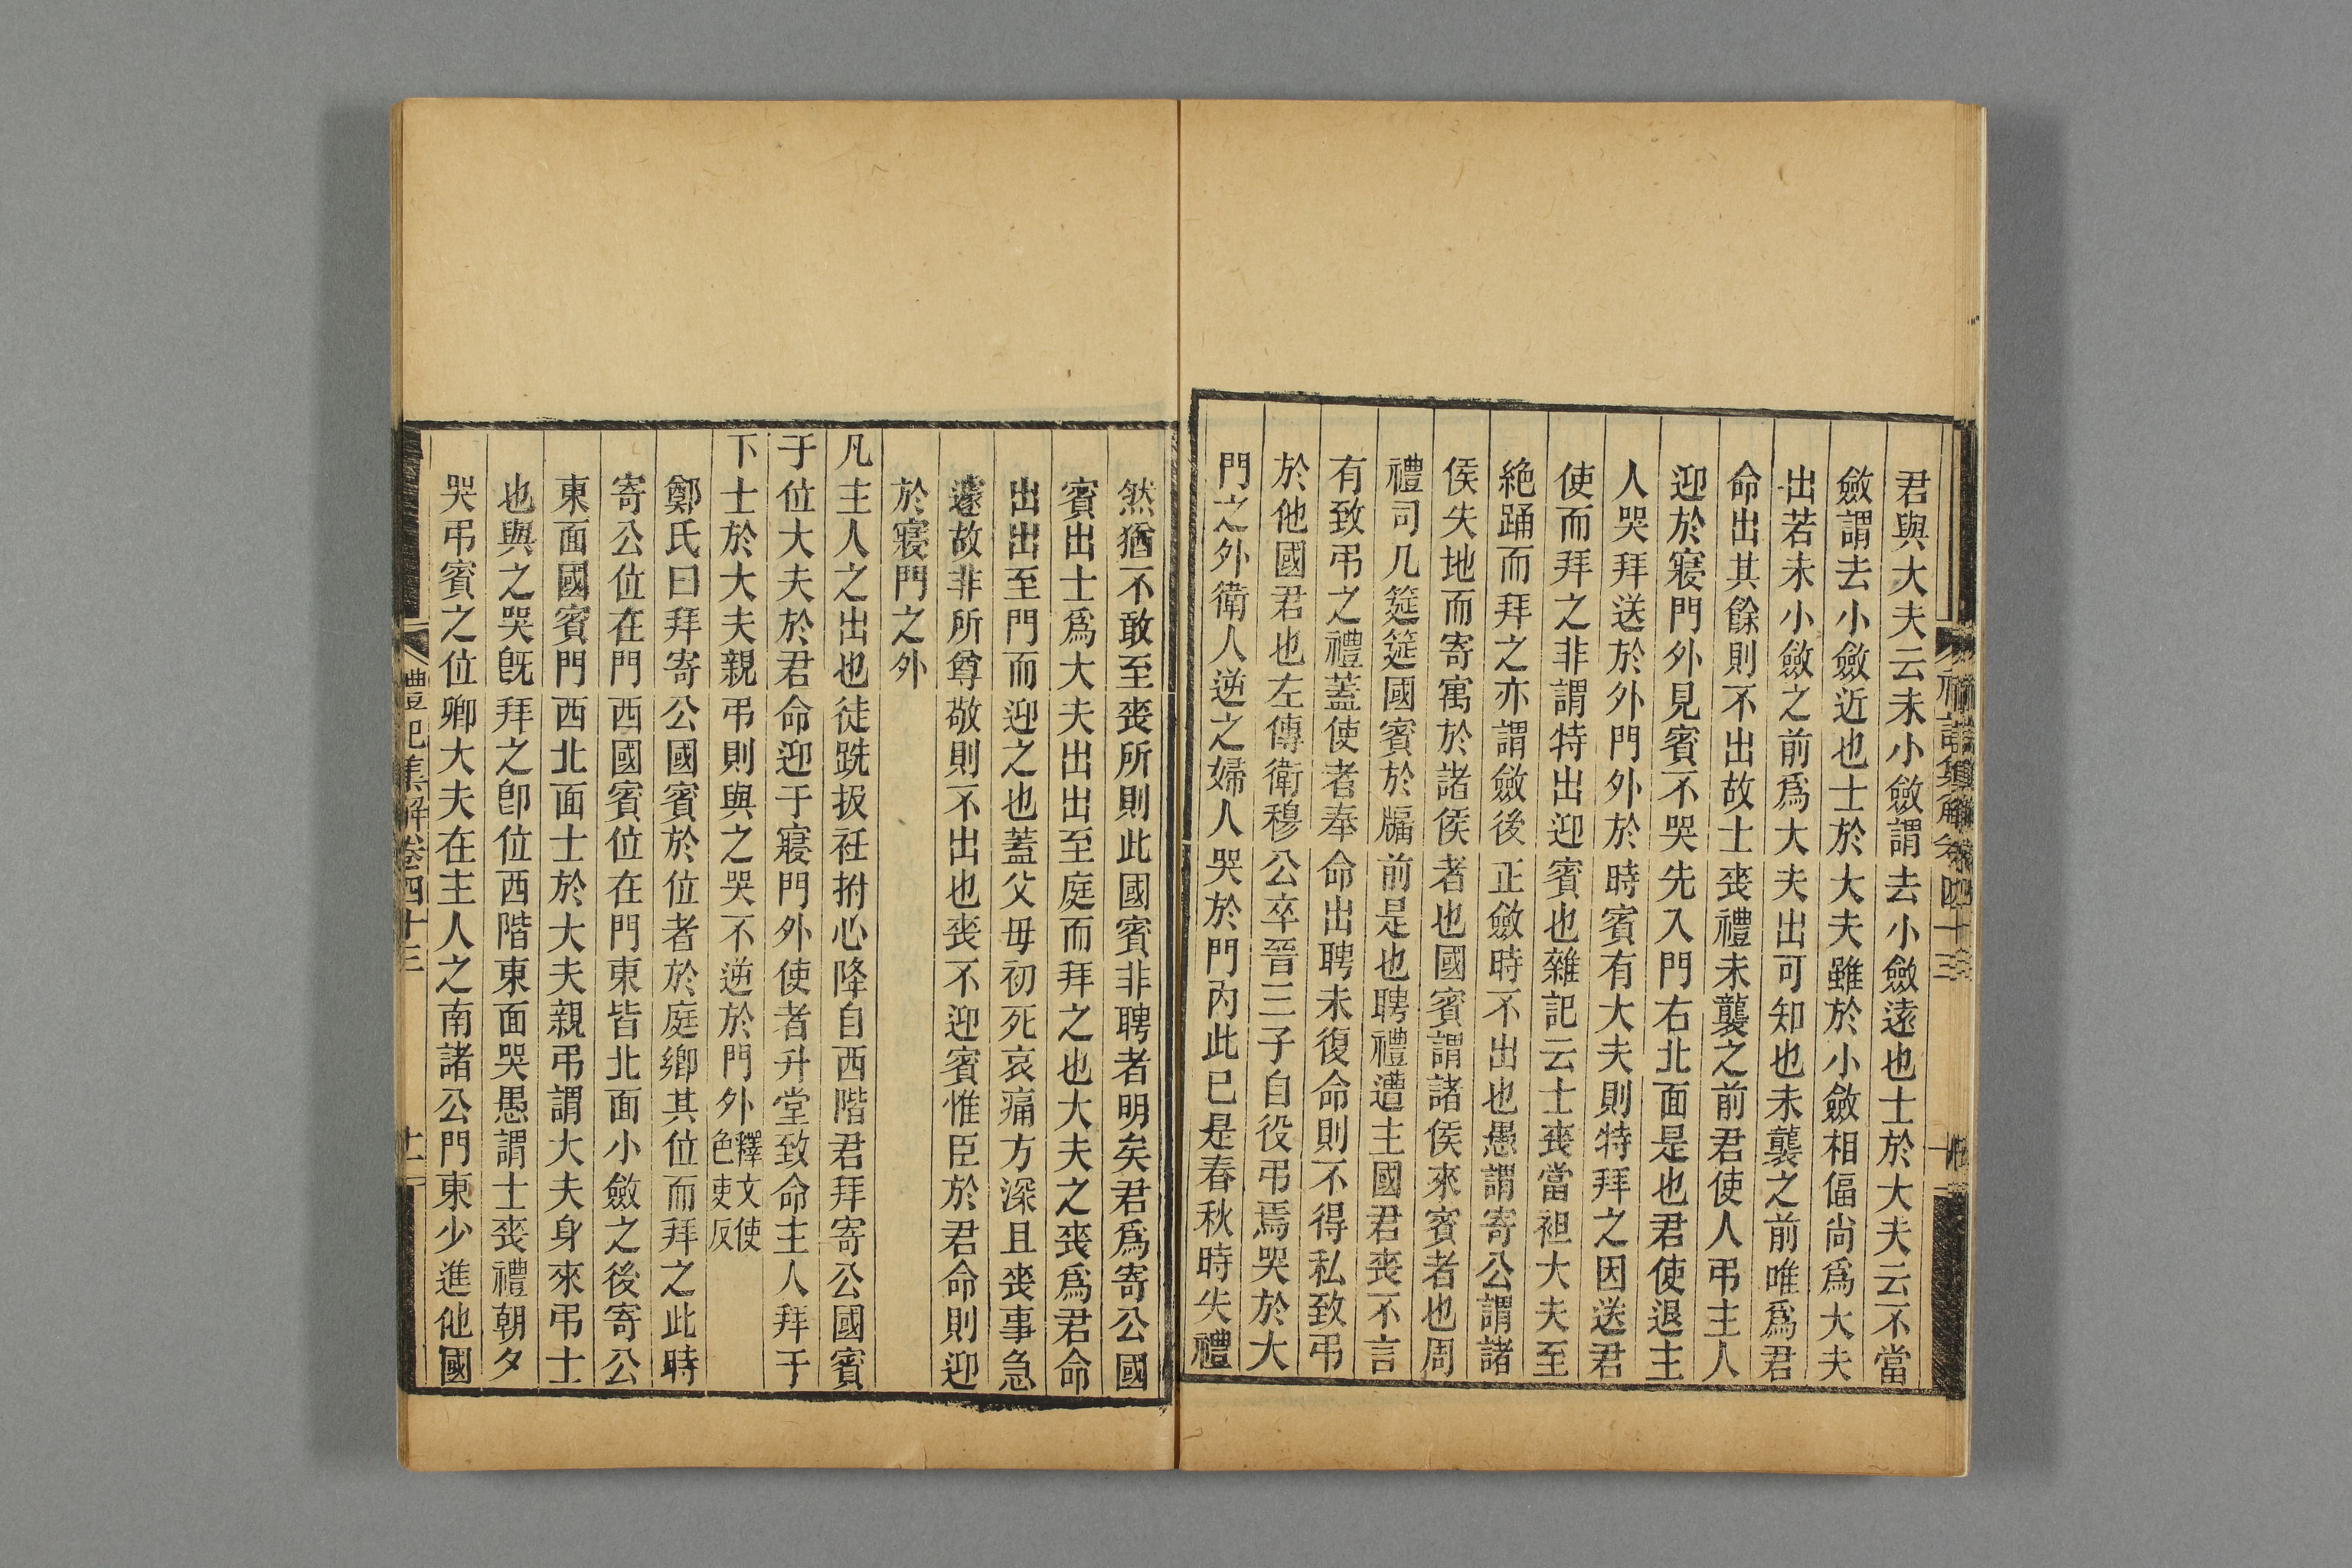 君與大夫云未小斂謂去小斂遠也士於大夫云不當
斂謂去小斂近也士於大夫雖於小斂相偪尚爲大夫
出若未小斂之前爲大夫出可知也未襲之前唯爲君
命出其餘則不出故士喪禮未襲之前君使人弔主人
迎於寢門外見賓不哭先入門右北面是也君使退主
人哭拜送於外門外於時賓有大夫則特拜之因送君
使而拜之非謂特出迎賓也雜記云士喪當袒大夫至
絶踊而拜之亦謂斂後正斂時不出也愚謂寄公謂諸
侯失地而寄寓於諸侯者也國賓謂諸侯來賓者也周
禮司几筵筵國賓於牖前是也聘禮遭主國君喪不言
有致弔之禮蓋使者奉命出聘未復命則不得私致弔
於他國君也左傳衛穆公卒晉三子自役弔焉哭於大
門之外衛人逆之婦人哭於門內此已是春秋時失禮
然猶不敢至喪所則此國賓非聘者明矣君爲寄公國
賓出士爲大夫出出至庭而拜之也大夫之喪爲君命
出出至門而迎之也蓋父毋初死哀痛方深且喪事急
遽故非所尊敬則不出也喪不迎賓惟臣於君命則迎
於寢門之外
凡主人之出也徒跣扱衽拊心降自西階君拜寄公國賓
于位大夫於君命迎于寢門外使者升堂致命主人拜于
下士於大夫親弔則與之哭不逆於門外釋文使色吏反
鄭氏曰拜寄公國賓於位者於庭鄉其位而拜之此時
寄公位在門西國賓位在門東皆北面小斂之後寄公
東面國賓門西北面士於大夫親弔謂大夫身來弔士
也與之哭旣拜之卽位西階東面哭愚謂士喪禮朝夕
哭弔賓之位卿大夫在主人之南諸公門東少進他國
禮記集解卷四十三